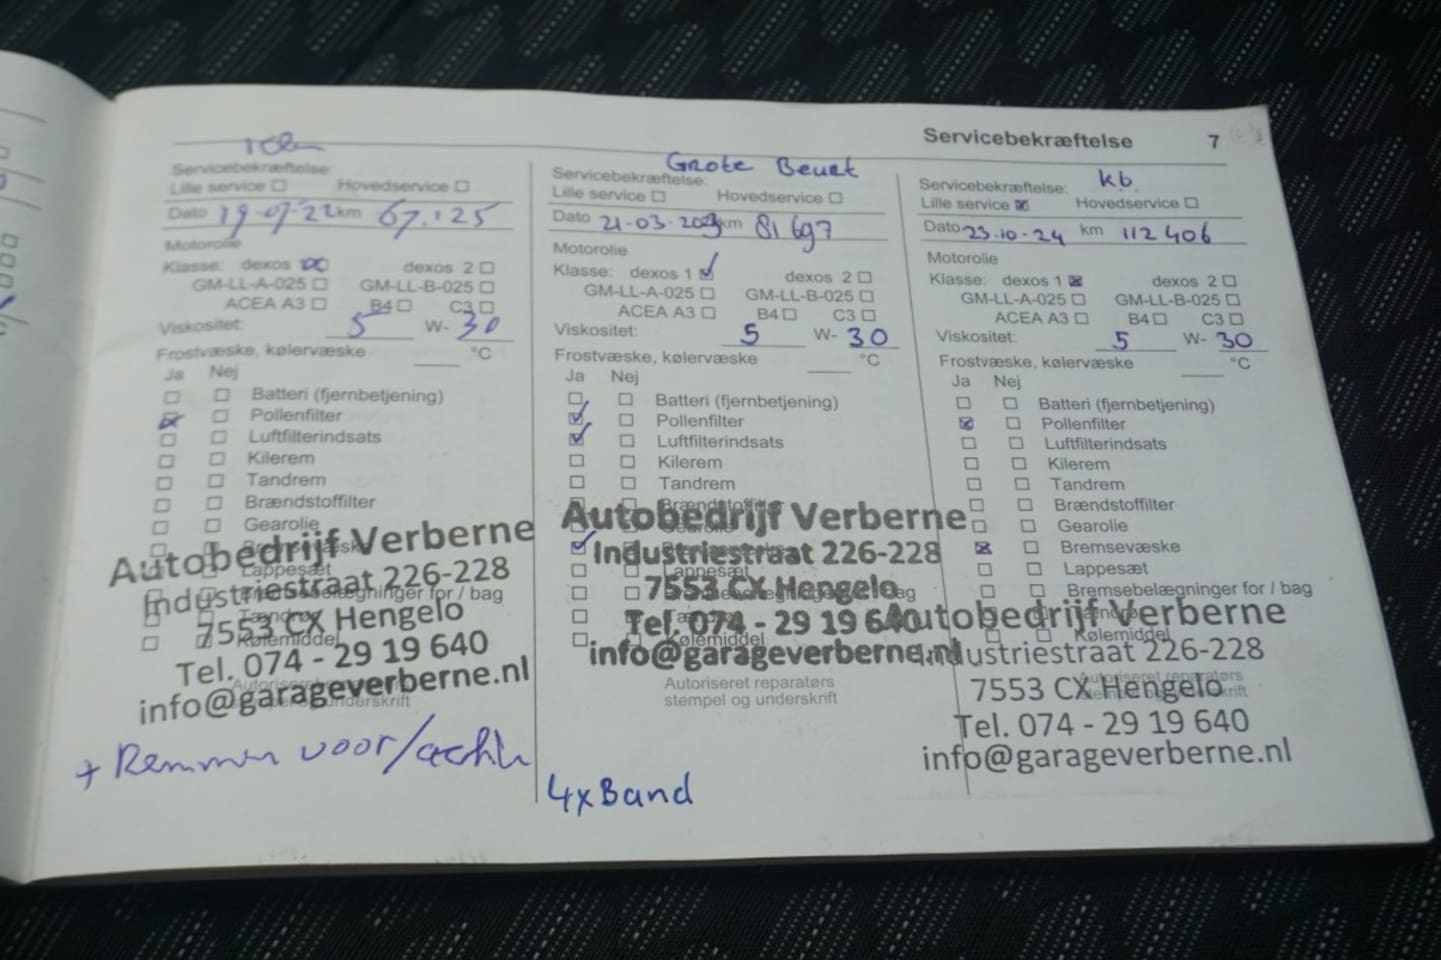 Servicebekræftelse 7
Servicebekræftelse:
Lille service Hovedservice
Dato 19-07-22 km 67.125
Motorolie
Klasse: dexos dexos 2
GM-LL-A-025 GM-LL-B-025
ACEA A3 B4 C3
Viskositet: 5 W- 30
Frostvæske, kølervæske °C
Ja Nej
Batteri (fjernbetjening)
Pollenfilter
Luftfilterindsats
Kilerem
Tandrem
Brændstoffilter
Gearolie
Lappesæt
Bremsebelægninger for / bag
Kølemiddel
Autobedrijf Verberne
Industriestraat 226-228
7553 CX Hengelo
Tel. 074 - 29 19 640
info@garageverberne.nl
+ Remmen voor/achter
Grote Beurt
Servicebekræftelse:
Lille service Hovedservice
Dato 21-03-2023 km 81697
Motorolie
Klasse: dexos 1 dexos 2
GM-LL-A-025 GM-LL-B-025
ACEA A3 B4 C3
Viskositet: 5 W- 30
Frostvæske, kølervæske °C
Ja Nej
Batteri (fjernbetjening)
Pollenfilter
Luftfilterindsats
Kilerem
Tandrem
Brændstoffilter
Lappesæt
Kølemiddel
Autobedrijf Verberne
Industriestraat 226-228
7553 CX Hengelo
Tel. 074 - 29 19 640
info@garageverberne.nl
Autoriseret reparatørs
stempel og underskrift
4x Band
kb.
Servicebekræftelse:
Lille service Hovedservice
Dato 23-10-24 km 112406
Motorolie
Klasse: dexos 1 dexos 2
GM-LL-A-025 GM-LL-B-025
ACEA A3 B4 C3
Viskositet: 5 W- 30
Frostvæske, kølervæske °C
Ja Nej
Batteri (fjernbetjening)
Pollenfilter
Luftfilterindsats
Kilerem
Tandrem
Brændstoffilter
Gearolie
Bremsevæske
Lappesæt
Bremsebelægninger for / bag
Kølemiddel
Autobedrijf Verberne
Industriestraat 226-228
7553 CX Hengelo
Tel. 074 - 29 19 640
info@garageverberne.nl